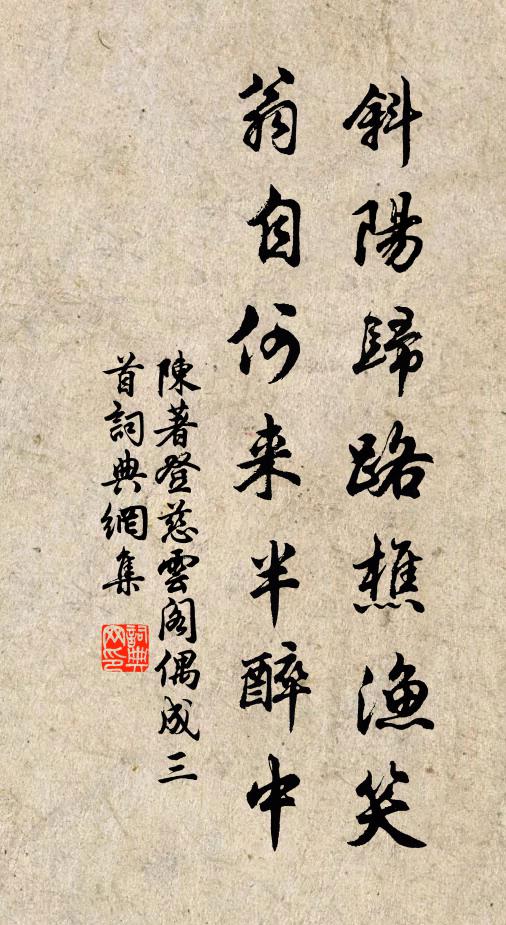 斜陽歸路樵漁笑
翁自何来半醉中
陳著登慈雲閣偶成三
首詞典網集
詞典
网印